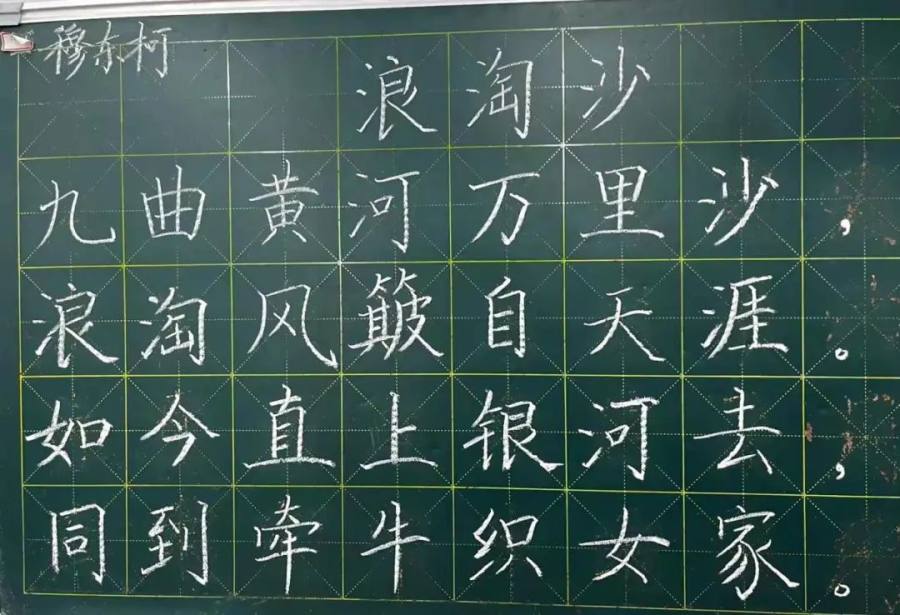 穆东柯
浪淘沙
九曲黄河万里沙，
浪淘风簸自天涯。
如今直上银河去，
同到牵牛织女家。